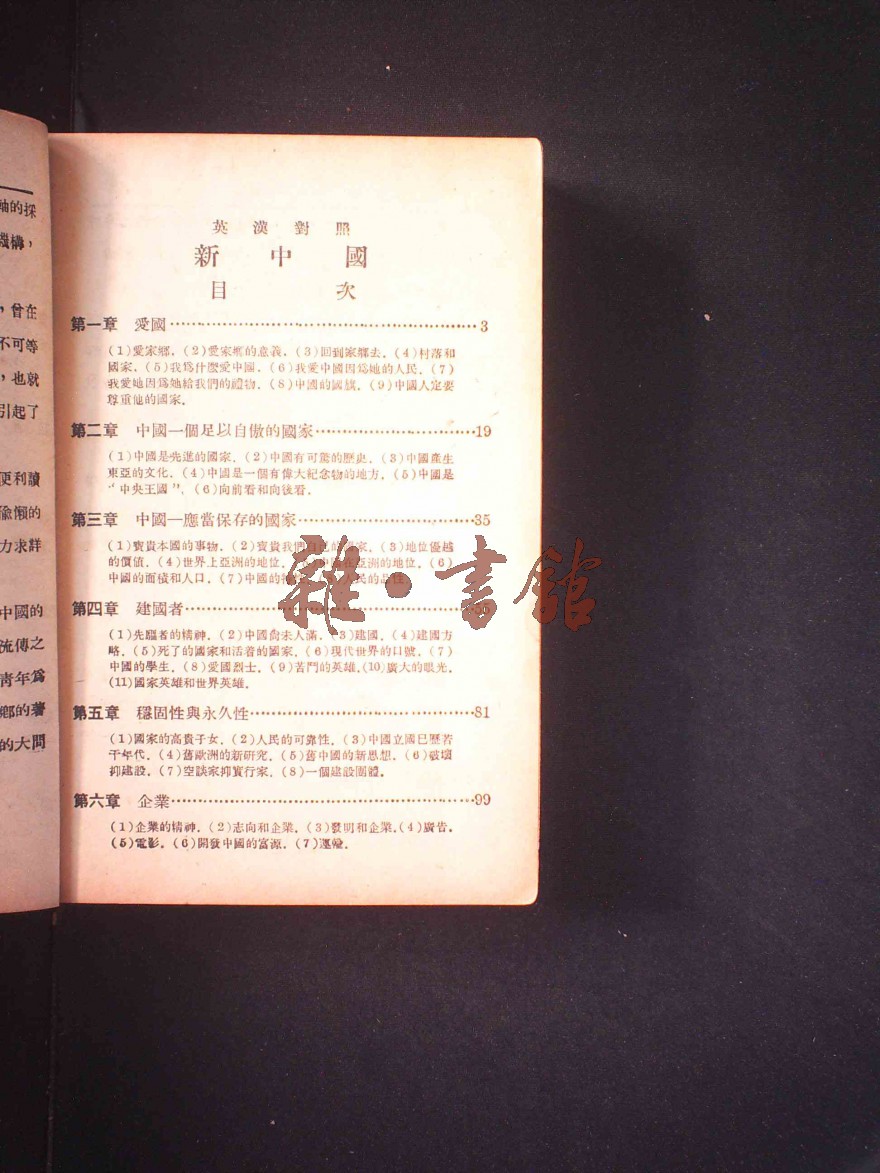 軸的採
機構，
，曾在
不可等
，也就
引起了
更利讀
偸懶的
力求詳
中國的
流傳之
靑年爲
鄉的著
的大問
英漢對照
新中國
目次
第一章 愛國 3
(1)愛家鄉．(2)愛家鄉的意義．(3)回到家鄉去．(4)村落和
國家．(5)我爲什麼愛中國．(6)我愛中國因爲她的人民．(7)
我愛她因爲她給我們的禮物．(8)中國的國旗．(9)中國人定要
尊重他的國家．
第二章 中國一個足以自傲的國家 19
(1)中國是先進的國家．(2)中國有可驚的歷史．(3)中國產生
東亞的文化．(4)中國是一個有偉大紀念物的地方．(5)中國是
“中央王國”．(6)向前看和向後看．
第三章 中國—應當保存的國家 35
(1)寶貴本國的事物．(2)寶貴我們自己的國家．(3)地位優越
的價值．(4)世界上亞洲的地位．(5)中國在亞洲的地位．(6)
中國的面積和人口．(7)中國的 人民的品性
第四章 建國者
(1)先驅者的精神．(2)中國尙未人滿．(3)建國．(4)建國方
略．(5)死了的國家和活着的國家．(6)現代世界的口號．(7)
中國的學生．(8)愛國烈士．(9)苦鬥的英雄．(10)廣大的眼光．
(11)國家英雄和世界英雄．
第五章 穩固性與永久性 81
(1)國家的高貴子女．(2)人民的可靠性．(3)中國立國已歷若
干年代．(4)舊歐洲的新研究．(5)舊中國的新思想．(6)破壞
抑建設．(7)空談家抑實行家．(8)一個建設團體．
第六章 企業 99
(1)企業的精神．(2)志向和企業．(3)發明和企業．(4)廣告．
(5)電影．(6)開發中國的富源．(7)運輸．
雜·書館